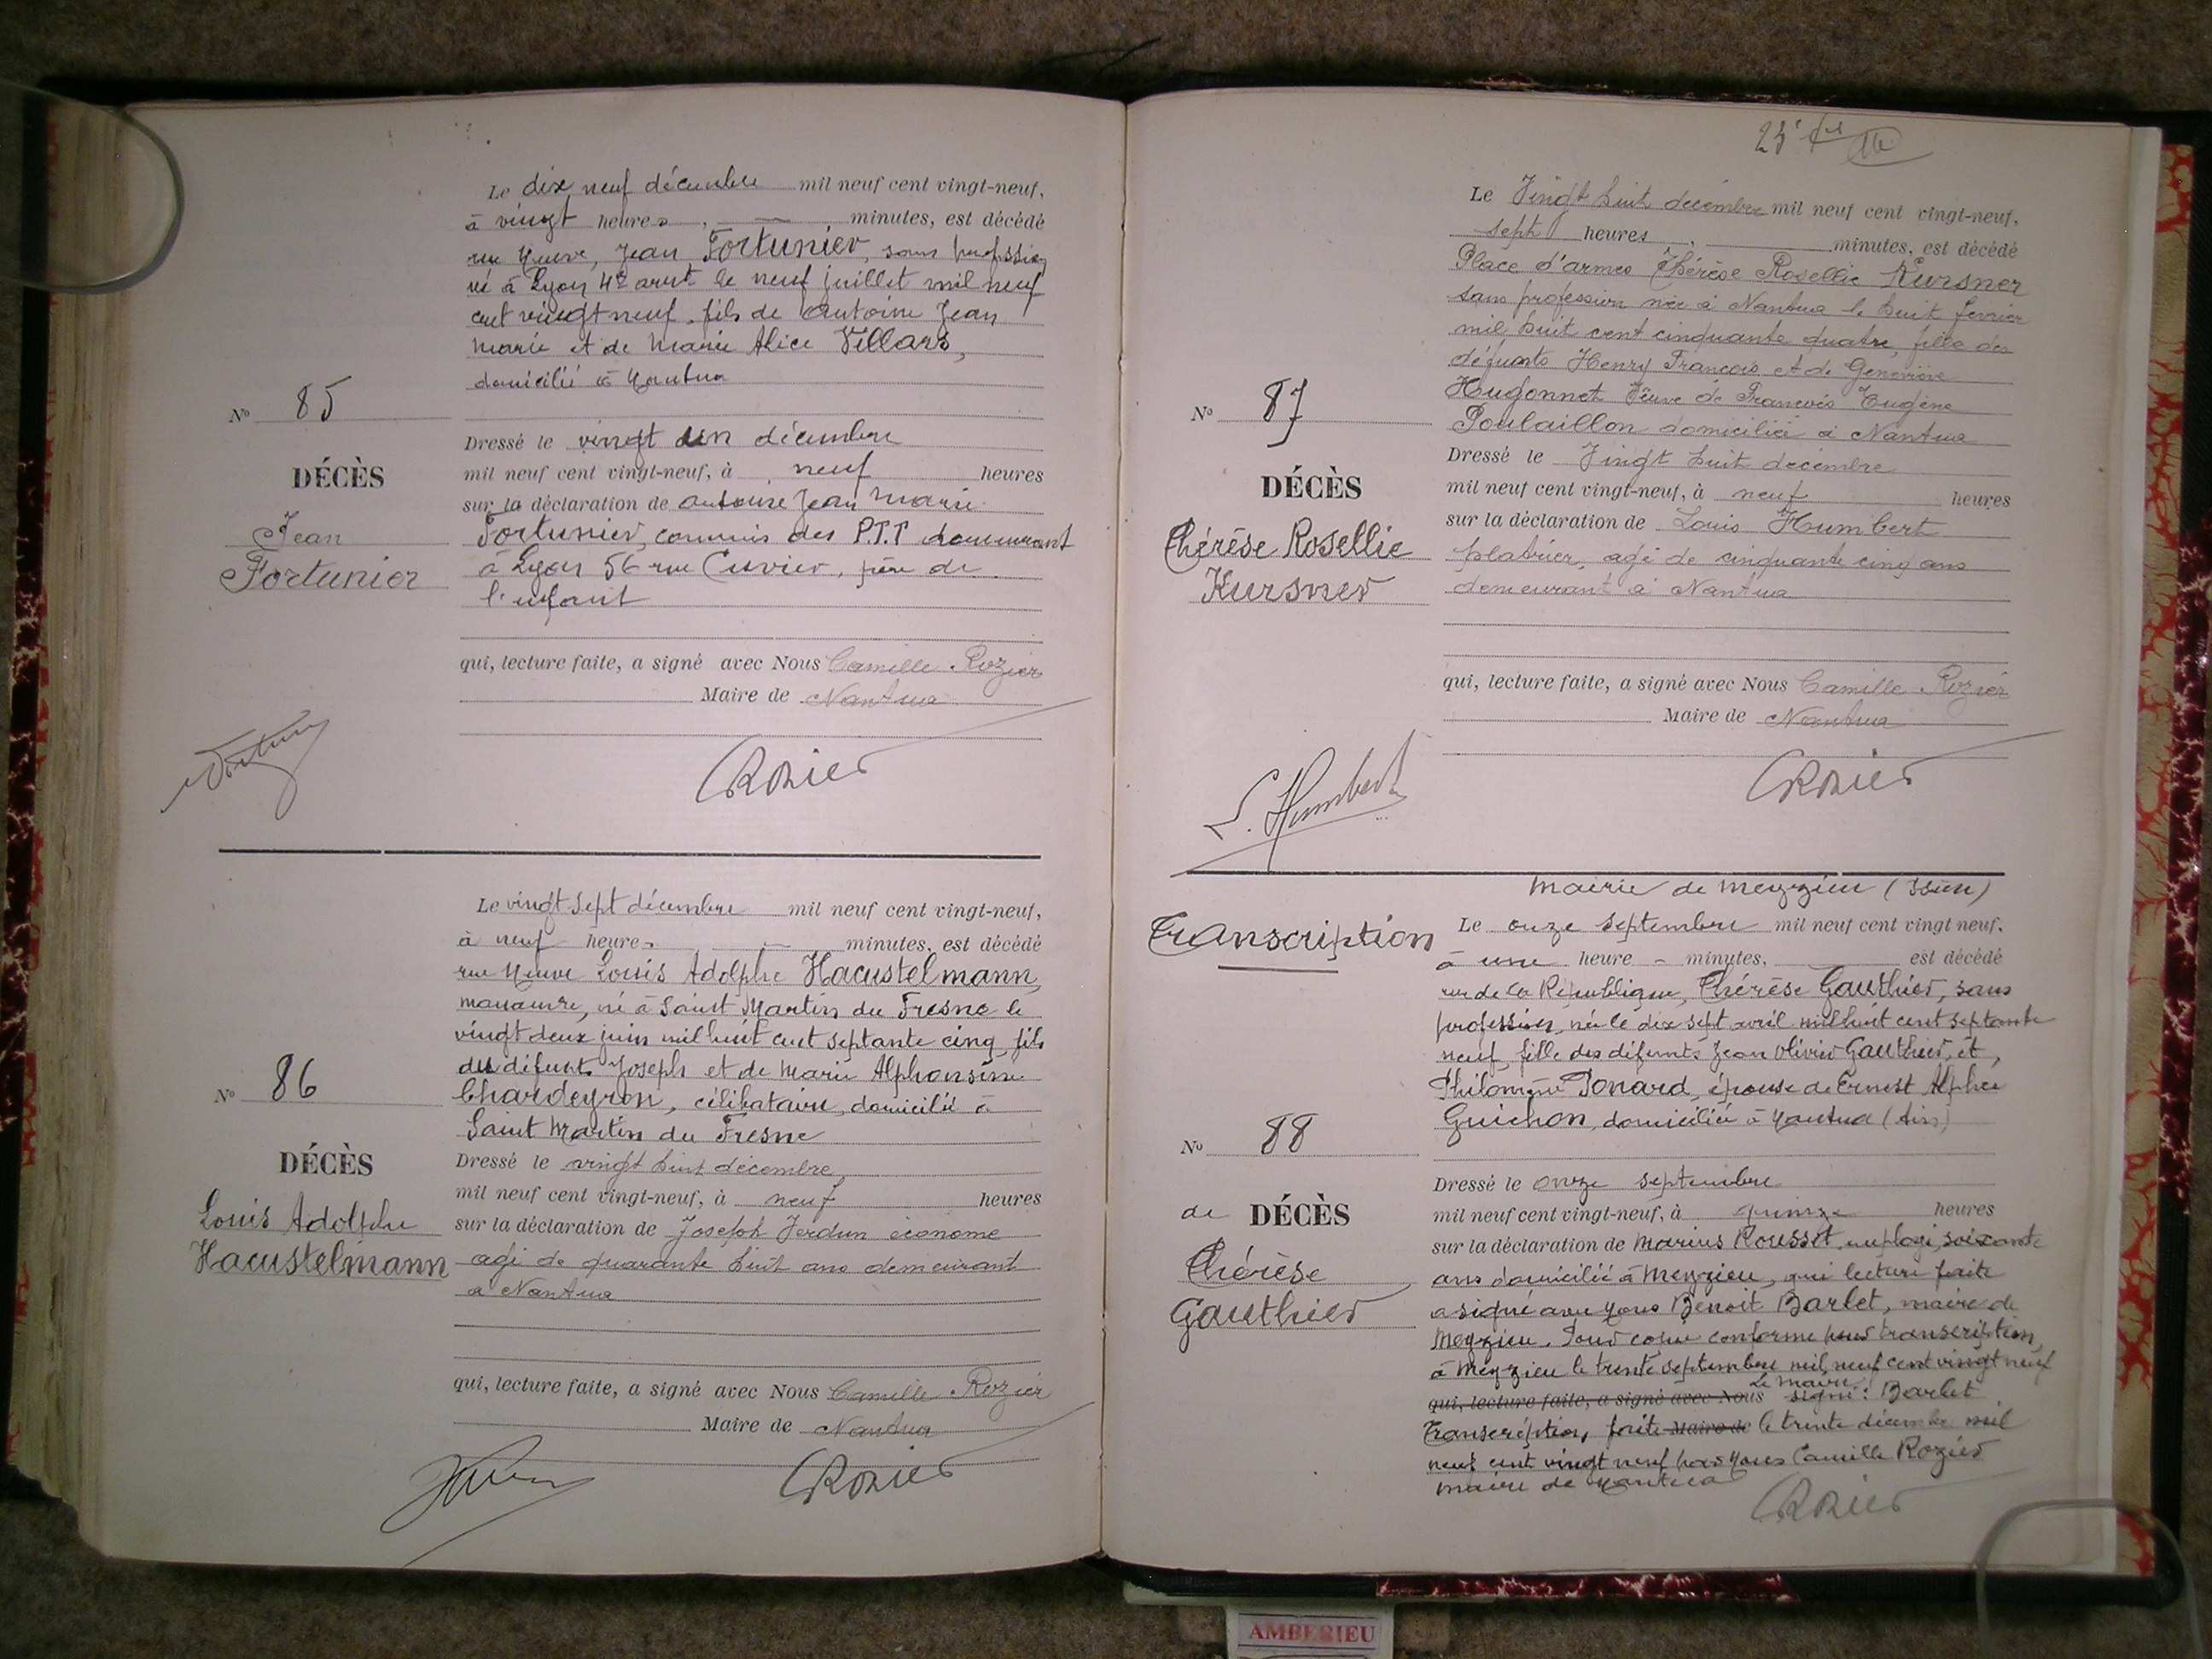 Le dix neuf décembre mil neuf cent vingt-neuf,
à vingt heures, — minutes, est décédé
rue Neuve, Jean Fortunier, sans profession
né à Lyon 4e arrt le neuf juillet mil neuf
cent vingt neuf, fils de Antoine Jean
Marie et de Marie Alice Villars,
domicilié à Nantua
No 85
Dressé le vingt un décembre
mil neuf cent vingt-neuf, à neuf heures
DÉCÈS
sur la déclaration de Antoine Jean Marie
Jean
Fortunier, commis des P.T.T demeurant
Fortunier
à Lyon 56 rue Cuvier, père de
l'enfant
qui, lecture faite, a signé avec Nous Camille Rozier
Maire de Nantua
CRozier
Le vingt sept décembre mil neuf cent vingt-neuf,
à neuf heures — minutes, est décédé
rue Neuve Louis Adolphe Hacustelmann,
manœuvre, né à Saint Martin du Fresne le
vingt deux juin mil huit cent septante cinq, fils
des défunts Joseph et de Marie Alphonsine
No 86
Chardeyron, célibataire, domicilié à
Saint Martin du Fresne
DÉCÈS
Dressé le vingt huit décembre
mil neuf cent vingt-neuf, à neuf heures
Louis Adolphe
sur la déclaration de Joseph Jerdun économe
Hacustelmann
agé de quarante huit ans demeurant
à Nantua
qui, lecture faite, a signé avec Nous Camille Rozier
Maire de Nantua
CRozier
25e
Le Vingt huit décembre mil neuf cent vingt-neuf,
sept heures, minutes, est décédé
Place d'armes Thérèse Rosellie Kursner
sans profession née à Nantua le huit février
mil huit cent cinquante quatre, fille des
défunts Henry François et de Geneviève
No 87
Hugonnet Veuve de François Eugène
Poulaillon domiciliée à Nantua
Dressé le Vingt huit décembre
DÉCÈS
mil neuf cent vingt-neuf, à neuf heures
sur la déclaration de Louis Humbert
Thérèse Rosellie
platrier, agé de cinquante cinq ans
Kursner
demeurant à Nantua
qui, lecture faite, a signé avec Nous Camille Rozier
Maire de Nantua
L. Humbert
CRozier
Mairie de Meyzieu (Isère)
Transcription
Le onze septembre mil neuf cent vingt neuf,
à une heure - minutes, est décédé
rue de la République, Thérèse Gauthier, sans
profession, née le dix sept avril mil huit cent septante
neuf, fille des défunts Jean Olivier Gauthier, et,
Philomène Ponard, épouse de Ernest Alphée
Guichon, domiciliée à Nantua (Ain)
No 88
Dressé le onze septembre
de DÉCÈS
mil neuf cent vingt-neuf, à quinze heures
sur la déclaration de Marius Rousset, employé, soixante
Thérèse
ans domicilié à Meyzieu, qui lecture faite
Gauthier
a signé avec Nous Benoit Barlet, maire de
Meyzieu. Pour copie conforme pour transcription,
à Meyzieu le trente septembre mil neuf cent vingt neuf
Le maire
qui, lecture faite, a signé avec Nous signé: Barlet
Transcription, faite Maire de le trente décembre mil
neuf cent vingt neuf par Nous Camille Rozier
maire de Nantua
CRozier
AMBERIEU